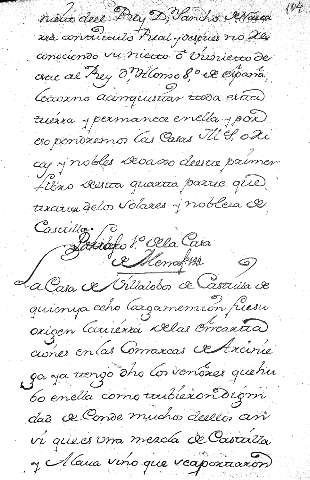 104
nieta del Rey Dⁿ Sancho de Nava
rra con titulo Real, y despues no des
conociendo su nieto o visnieto de
este al Rey Dⁿ Alonso 8.º de españa
torno a conquistar toda esta
tierra y permanece en ella y por
esso pondremos las Casas
cas y nobles de baxo de este primer
libro de esta quarta parte que
tratta de los solares y nobleza de
Castilla
Parrafo 1.º de la Casa
de
La Casa de Villalobos de Castilla de
quien ya echo larga mencion fue su
origen la tierra de las encarta
ciones en las Comarcas de Arcinie
ga ya tengo dho los señores que hu
bo en ella como tubieron digni
dad de Conde muchos de ellos an
si que es una mezcla de Castilla
y Alava vino que se apartaron